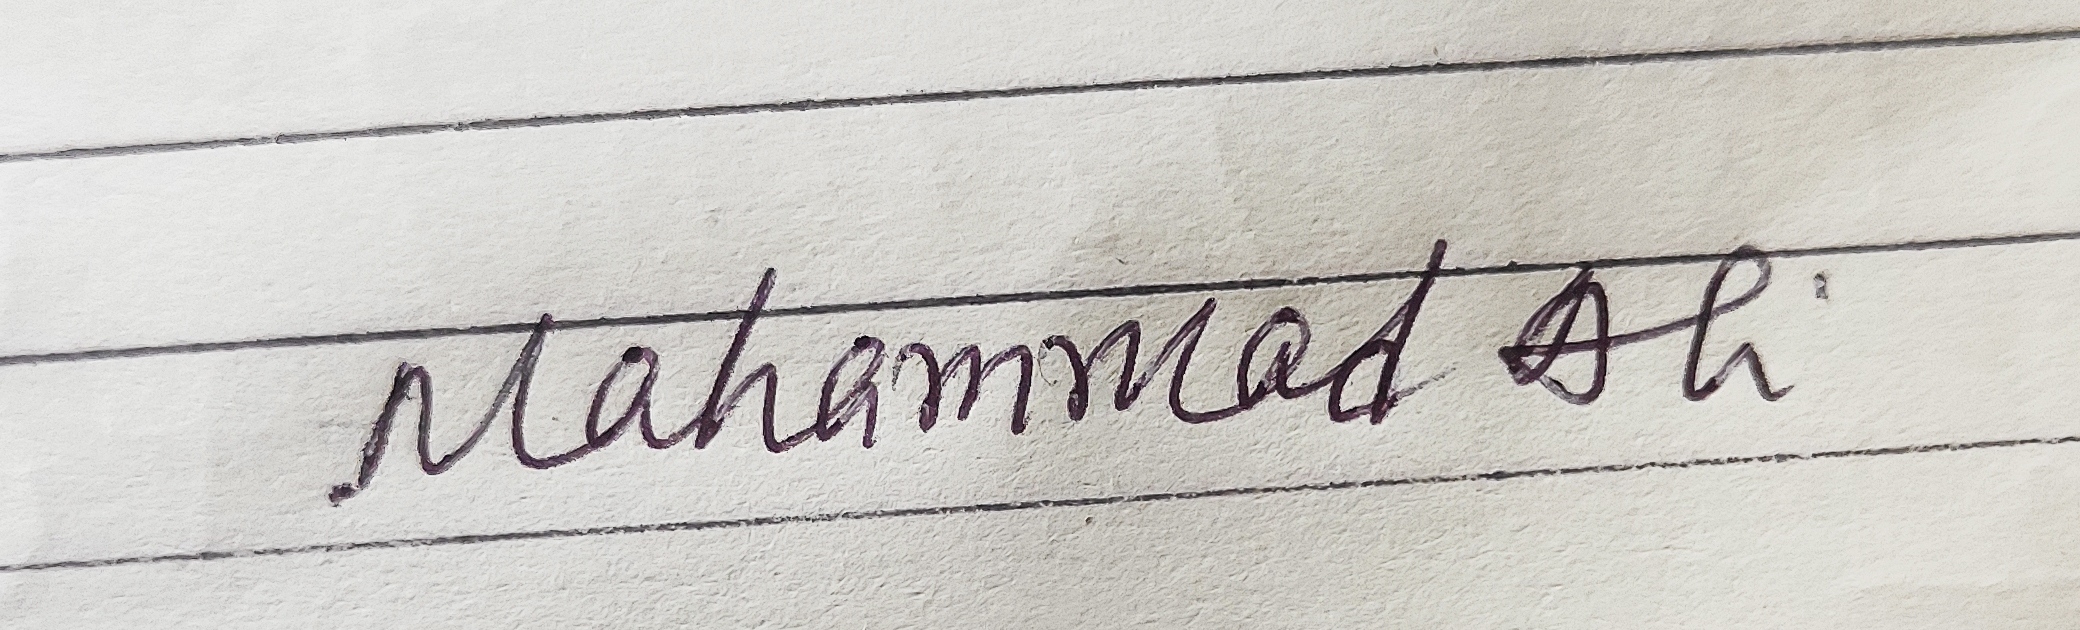 Mahammad Ali